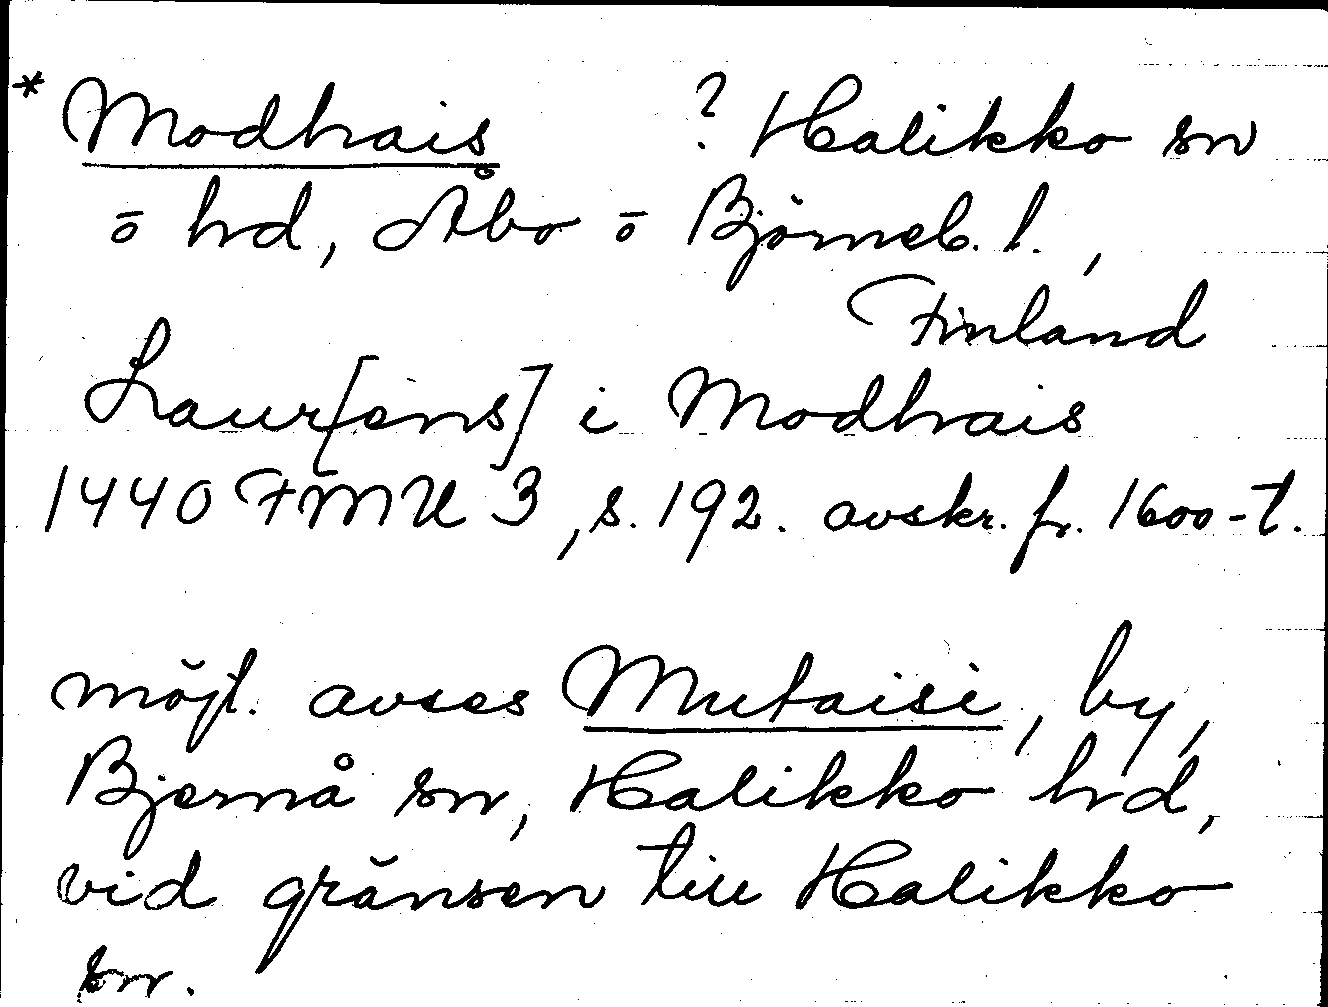 * Modhais ? Halikko sn
ō hd, Åbo ō Björneb. l.,
Finland
Laur[ens] i Modhais
1440 FMU 3, s. 192. avskr. fr. 1600-t.
möjl. avses Mutaisi, by,
Bjernå sn, Halikko hd,
vid gränsen till Halikko
sn.